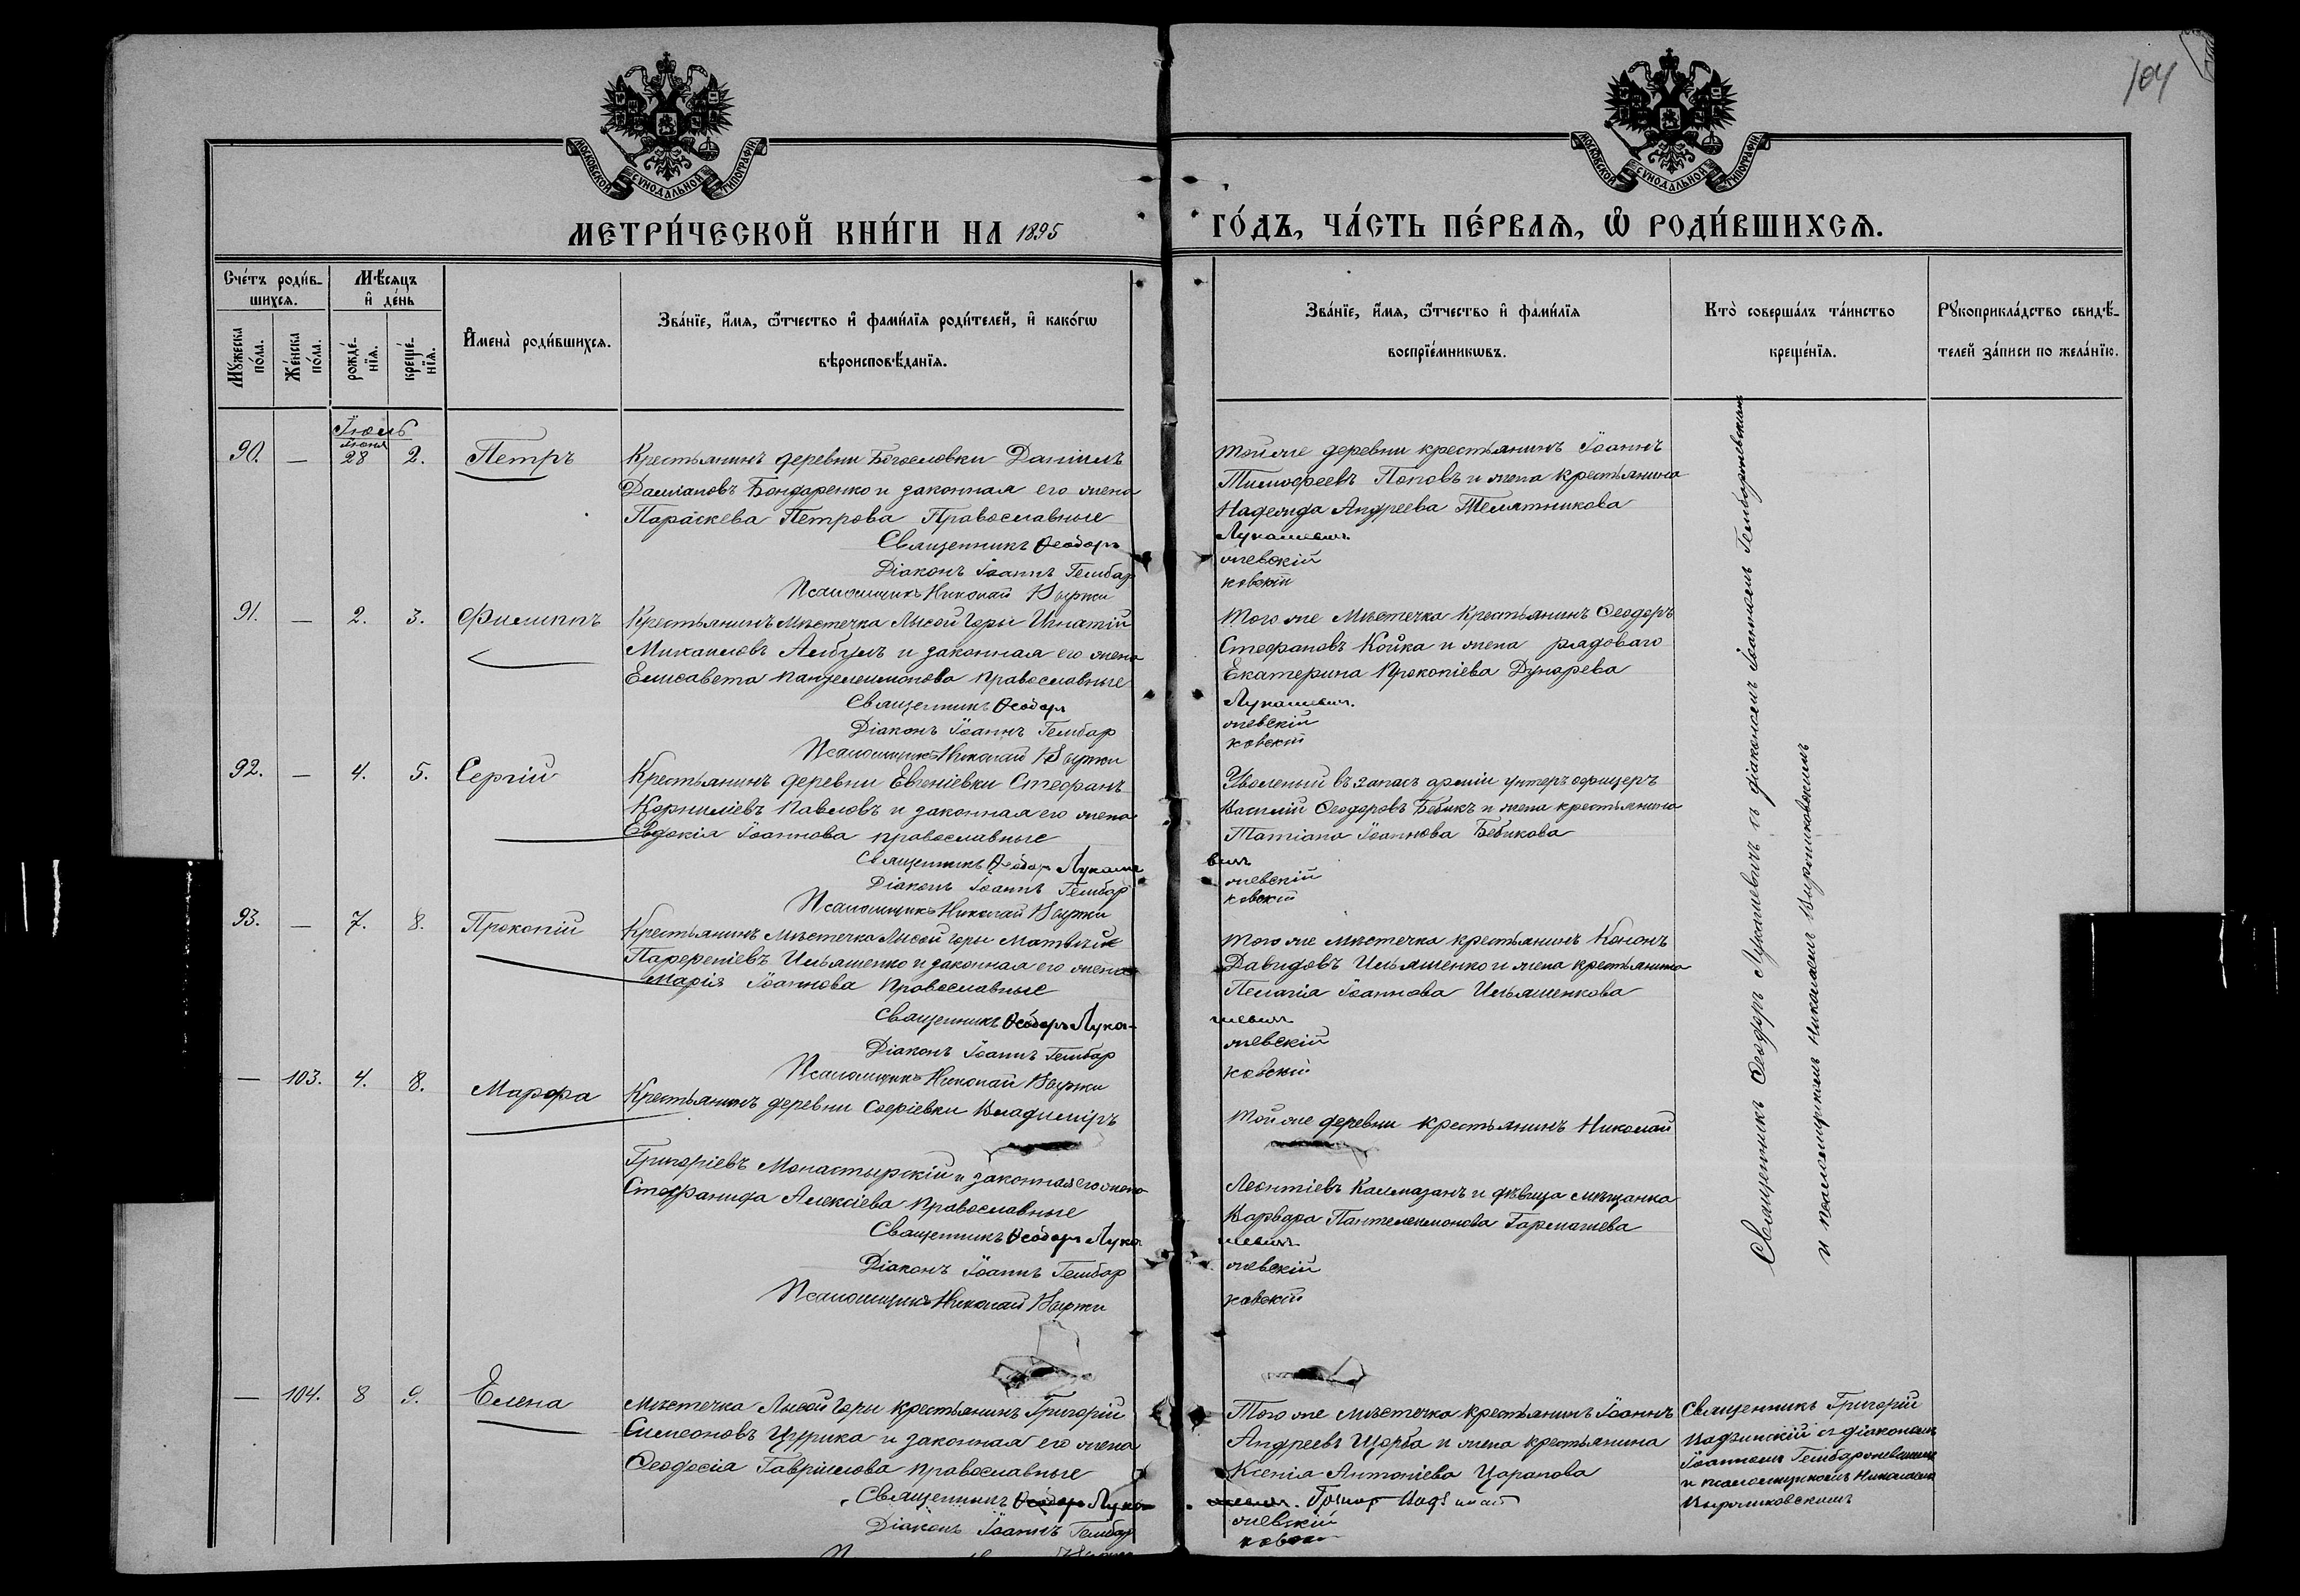 104
МОСКОВСКОЙ СѴНОДАЛЬНОЙ ТИПОГРАФІИ
МОСКОВСКОЙ СѴНОДАЛЬНОЙ ТИПОГРАФІИ
МЕТРИ́ЧЕСКОЙ КНИ́ГИ НА 1895 ГО́ДЪ, ЧА́СТЬ ПЕ́РВАѦ, Ѡ҆ РОДИ́ВШИХСѦ.
Сче́тъ роди́в-
шихсѧ.
Мꙋ́жеска по́ла.
Же́нска по́ла.
Мѣ́сѧцъ
и҆ де́нь
рожде́-
нїѧ.
креще́-
нїѧ.
И҆мена̀ роди́вшихсѧ.
Зва́нїе, и҆́мѧ, ѻ҆́тчество и҆ фами́лїѧ роди́телей, и҆ како́гѡ
вѣроисповѣ́данїѧ.
Зва́нїе, и҆́мѧ, ѻ҆́тчество и҆ фами́лїѧ
воспрїе́мникѡвъ.
Кто̀ соверша́лъ та́инство
креще́нїѧ.
Рꙋкоприкла́дство свидѣ́-
телей за́писи по жела́нїю.
Іюль
Іюня
90. — 28 2. Петръ
Крестьянинъ деревни Богословки Даніилъ
Даміановъ Бондаренко и законная его жена
Параскева Петрова Православные
Священникъ Ѳеодоръ
Діаконъ Іоаннъ Гембар
Псаломщикъ Николай Выржи
Той же деревни крестьянинъ Іоаннъ
Тимофеевъ Поповъ и жена крестьянина
Надежда Андреева Телятникова
Лукашевичъ
жевскій
ковскій
91. — 2. 3. Филиппъ
Крестьянинъ Мѣстечка Лысой Горы Игнатій
Михаиловъ и законная его жена
Елисавета Пантелеимонова православные
Священникъ Ѳеодоръ
Діаконъ Іоаннъ Гембар
Псаломщикъ Николай Выржи
Того же Мѣстечка Крестьянинъ Ѳеодоръ
Стефановъ Койка и жена рядоваго
Екатерина Прокопіева Дунарева
Лукашевич.
жевскій
ковскій
92. — 4. 5. Сергій
Крестьянинъ деревни Евгеніевки Стефанъ
Корниліевъ Павловъ и законная его жена
Евдокія Іоаннова православные
Священникъ Ѳеодоръ Лукаше
Діаконъ Іоаннъ Гембар
Псаломщикъ Николай Выржи
Уволеный въ запасъ арміи унтеръ офицеръ
Василій Ѳеодоровъ Бебикъ и жена крестьянина
Татіана Іоаннова Бебикова
вичъ
жевскій
ковскій
93. — 7. 8. Прокопій
Крестьянинъ Мѣстечка Лысой Горы Матвѣй
Парфеніевъ Ильяшенко и законная его жена
Марія Іоаннова Православные
Священникъ Ѳеодоръ Лука-
Діаконъ Іоаннъ Гембар
Псаломщикъ Николай Выржи
Того же мѣстечка крестьянинъ Кононъ
Давидовъ Ильяшенко и жена крестьянина
Пелагія Іоаннова Ильяшенкова
шевичъ
жевскій
ковскій
— 103. 4. 8. Марфа
Крестьянинъ деревни Софіевки Владиміръ
Григоріевъ Монастырскій и законная его жена
Стефанида Алексіева Православные
Священникъ Ѳеодоръ Лука
Діаконъ Іоаннъ Гембар
Псаломщикъ Николай Выржи
Той же деревни крестьянинъ Николай
Леонтіевъ Калмазанъ и дѣвица мѣщанка
Варвара Пантелеимонова Гармашева
шевичъ
жевскій
ковскій
Священникъ Ѳеодоръ Лукашевичъ съ діакономъ Іоанномъ Гембаржевскимъ
и псаломщикомъ Николаемъ Выржиковскимъ
— 104. 8 9. Елена
Мѣстечка Лысой Горы крестьянинъ Григорій
Симеоновъ Цуррика и законная его жена
Ѳеодосія Гавріилова православные
Священникъ Ѳеодоръ Лука
Діаконъ Іоаннъ Гембар
Того же мѣстечка крестьянинъ Іоаннъ
Андреевъ Щерба и жена крестьянина
Ксенія Антоніева Царанова
шевич. Григор
жевскій
ковскій
Священникъ Григорій
съ діакономъ
Іоанномъ Гембаржевскимъ
и псаломщикомъ Николаемъ
Выржиковскимъ